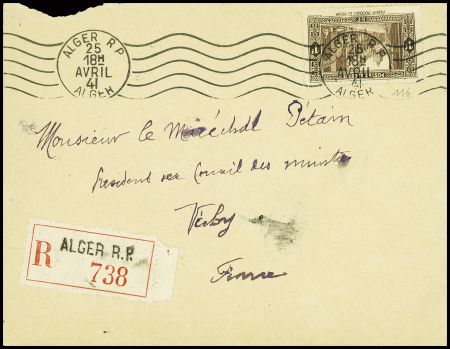 ALGER R.P.
25
18H
AVRIL
41
ALGER
ALGER R.P.
25
18H
AVRIL
41
ALGER
116
Monsieur le Maréchal Pétain
Président du Conseil des ministres
Vichy
France
R ALGER R.P.
738